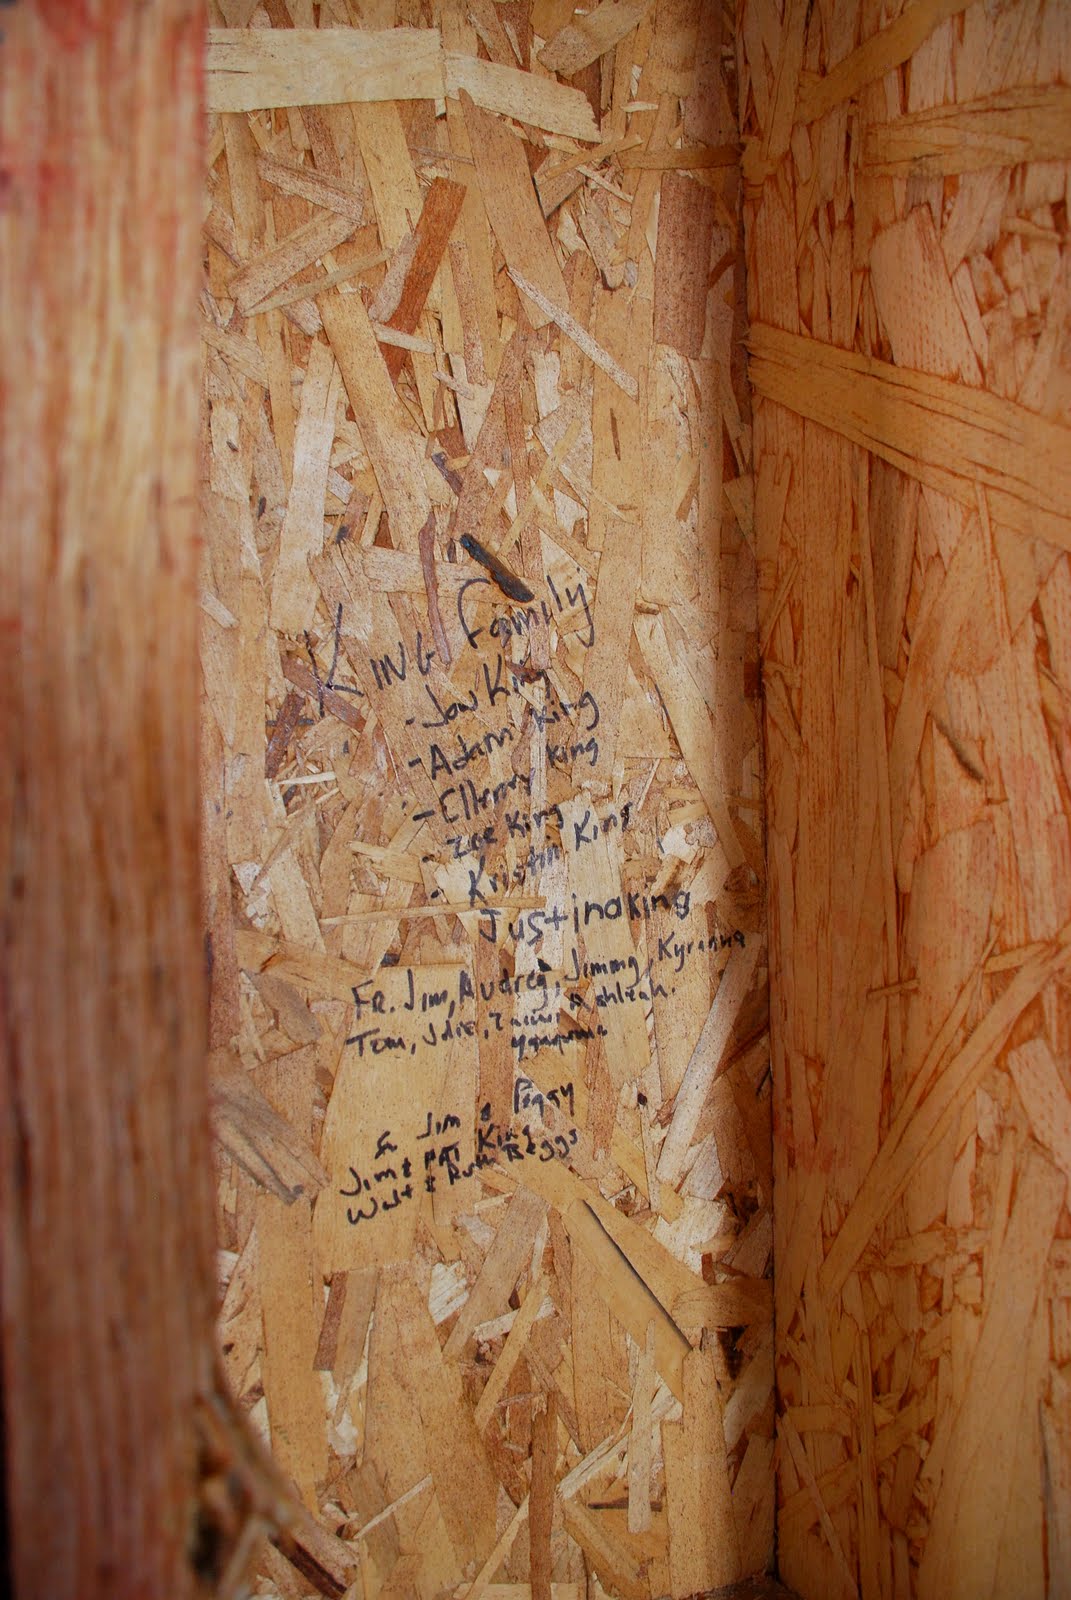 KING Family
- Jow King
- Adam King
- Ellery King
- Zoe King
- Kristin King
Justina King
Fr. Jim, Audrey, Jimmy, Kyranna
Tom, Julie, Ashleah.
Fr Jim & Peggy
Jim & PAT King
Walt & Ruth Beggs